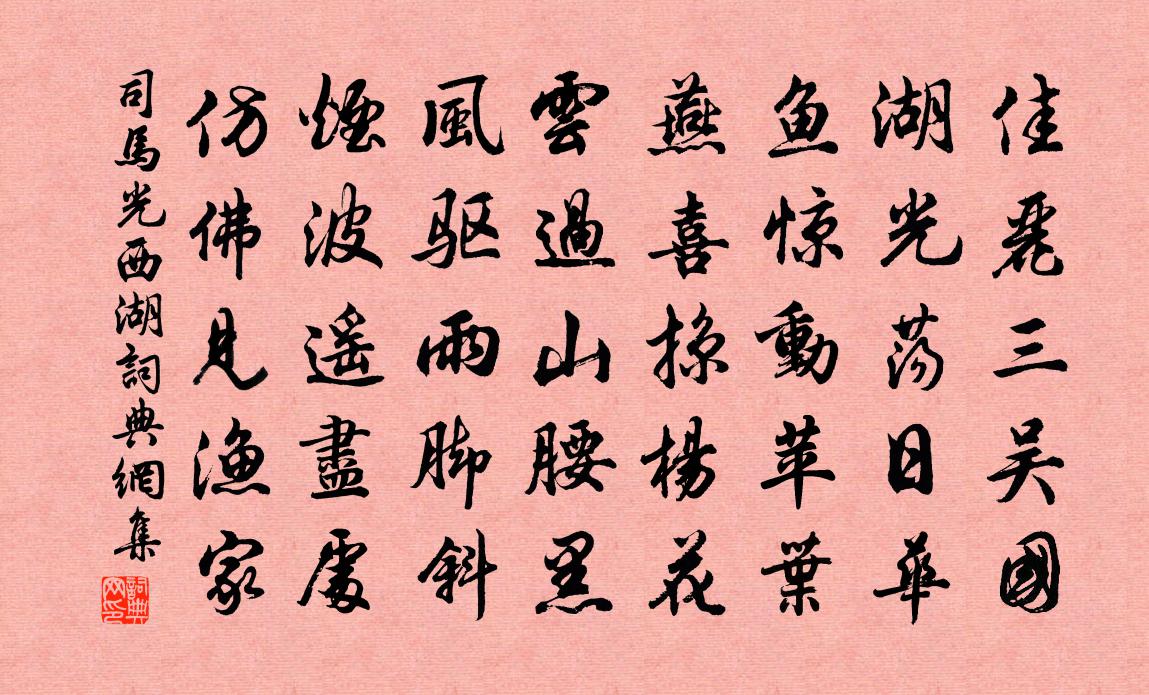 佳麗三吴國
湖光荡日華
鱼惊動苹葉
燕喜掠楊花
雲過山腰黑
風驱雨脚斜
煙波遥盡處
仿佛見漁家
司馬光西湖詞典網集
詞典網印